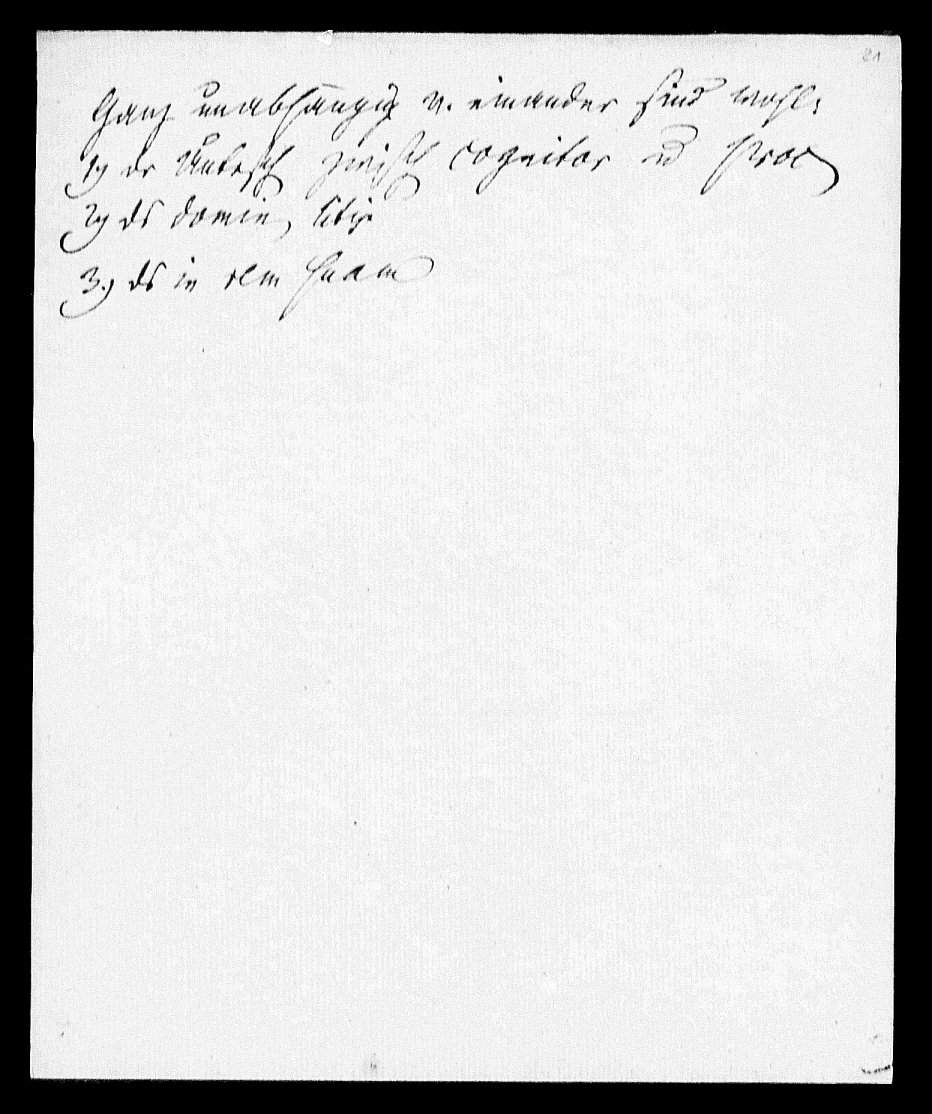 21
Ganz unabhängig v. einander sind wohl:
1) dr Untersch zwisch cognitor u proc
2) ds domin litis
3.) ds in rem suam